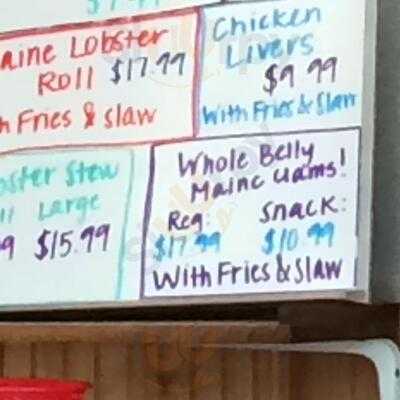 aine Lobster
Roll $17.99
h Fries & slaw
Chicken
Livers
$9 99
With Fries & Slaw
oster Stew
ll Large
9 $15.99
Whole Belly
Maine Clams!
Reg: Snack:
$17.99 $10.99
With Fries & Slaw